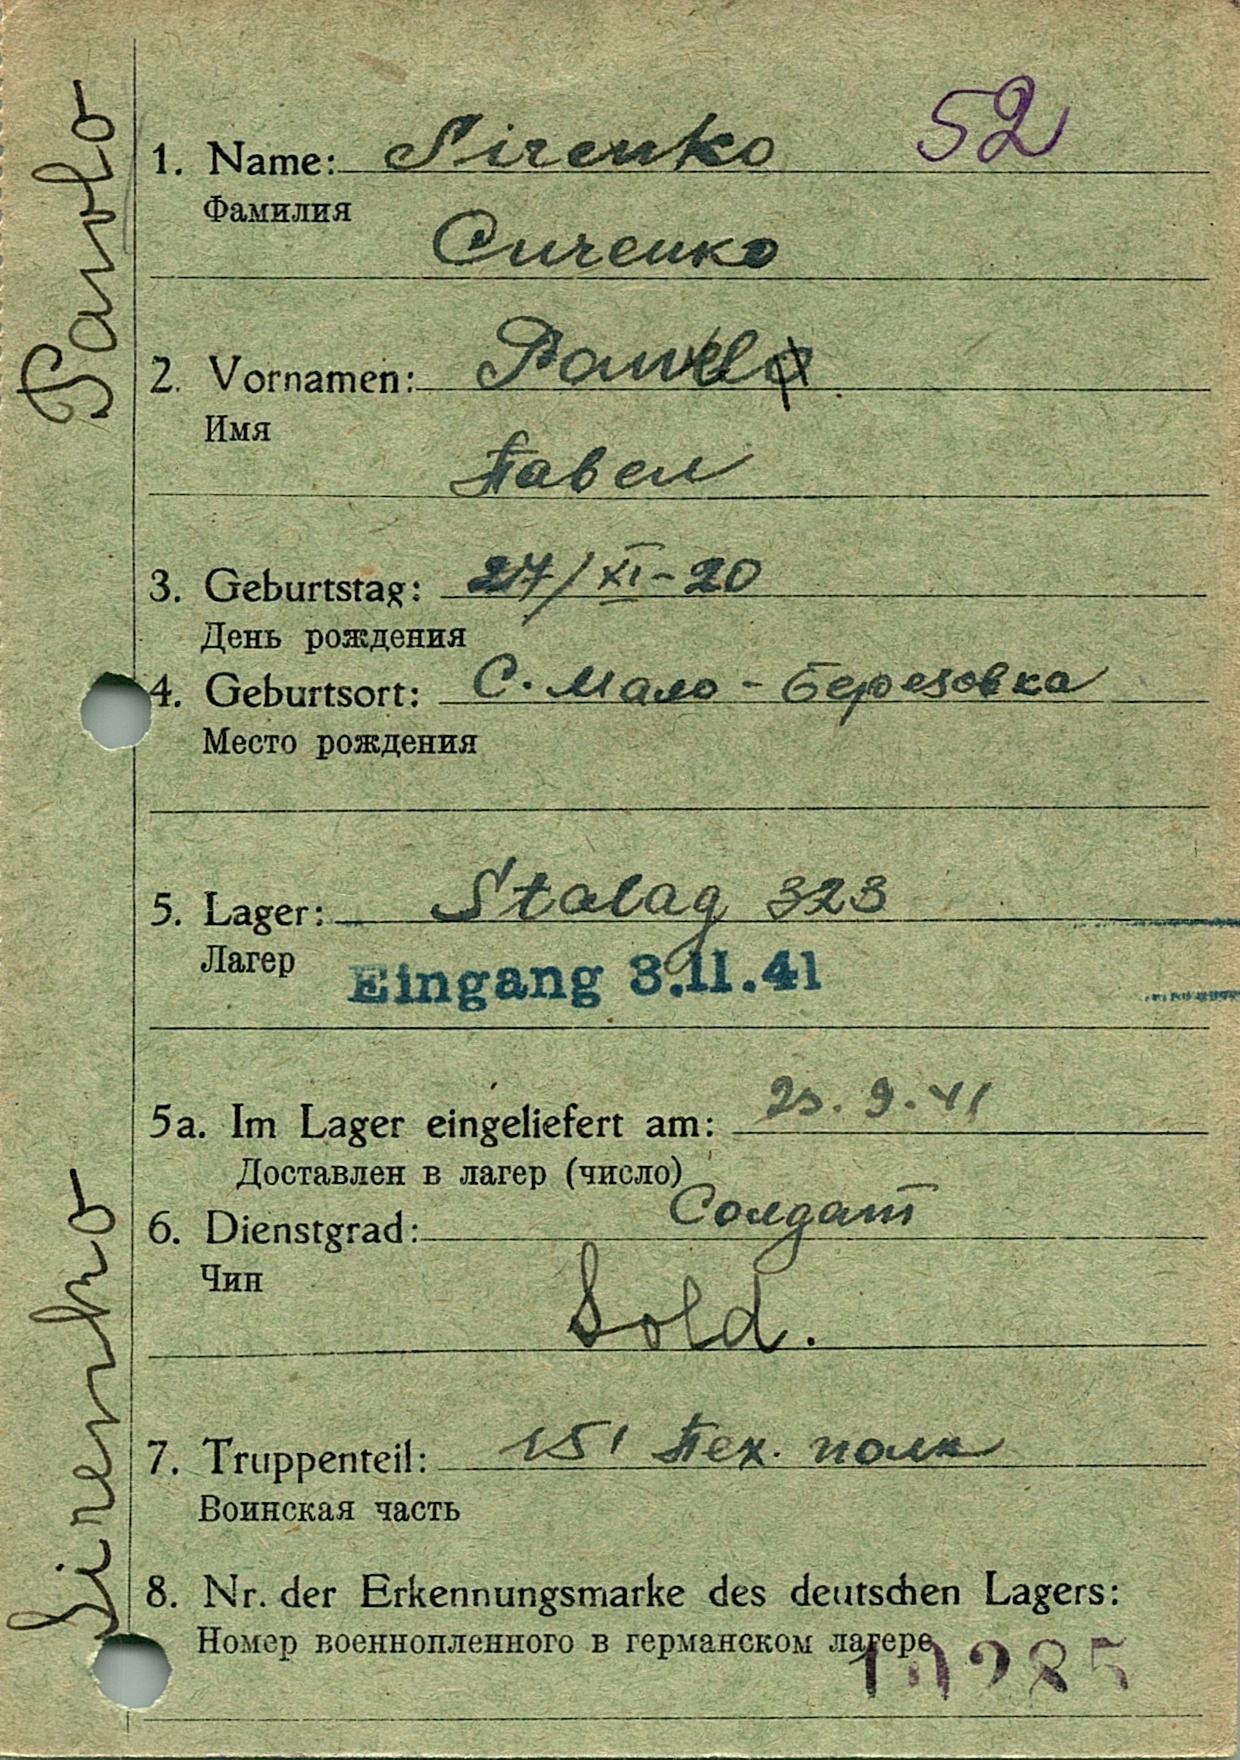 52
1. Name: Sirenko
Фамилия
Сиренко
2. Vornamen: Pawel
Имя
Павел
3. Geburtstag: 27/XI-20
День рождения
4. Geburtsort: С. Мало-Березовка
Место рождения
5. Lager: Stalag 323
Лагер
Eingang 3.11.41
5a. Im Lager eingeliefert am: 25.9.41
Доставлен в лагер (число)
6. Dienstgrad: Солдат
Чин
Sold.
7. Truppenteil: 151 Пех. полк
Воинская часть
8. Nr. der Erkennungsmarke des deutschen Lagers:
Номер военнопленного в германском лагере
10285
Sirenko Pawlo